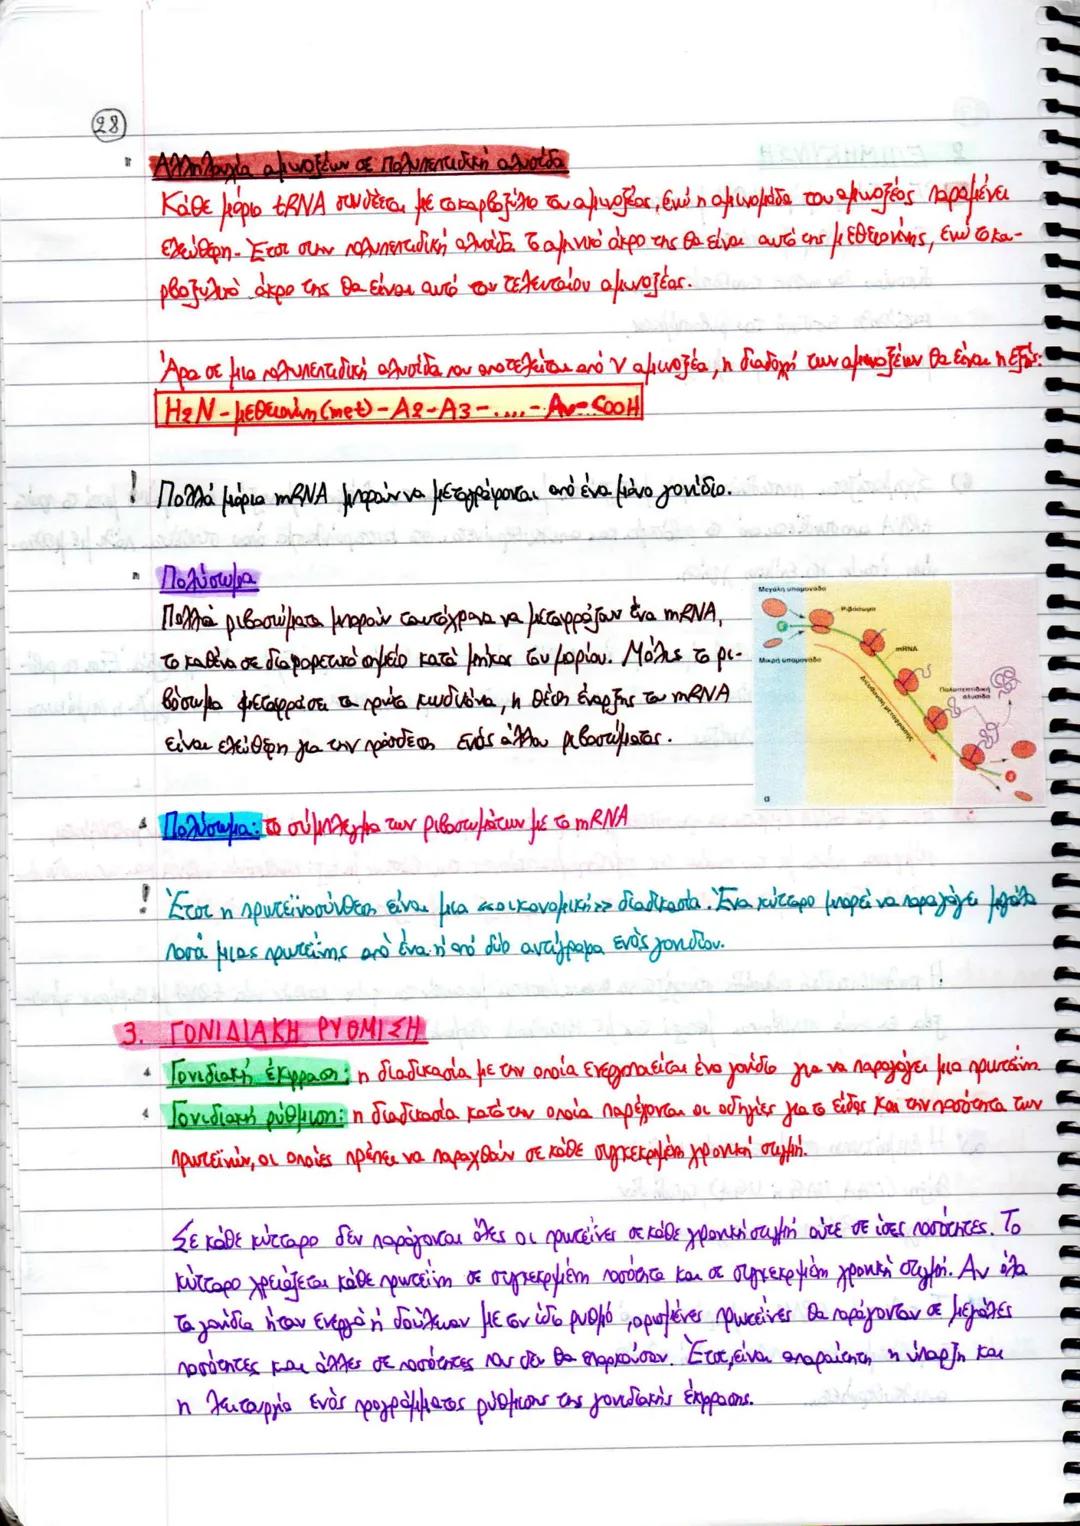 28
Αλληλουχία αμινοξέων σε πολυπεπτιδική αλυσίδα
Κάθε μόριο tRNA συνδέεται με το καρβοξύλιο του αμινοξέος, ενώ η αμινομάδα του αμινοξέος παραμένει
ελεύθερη. Έτσι στην πολυπεπτιδική αλυσίδα το αμινικό άκρο της θα είναι αυτό της μεθειονίνης, ενώ το κα-
ρβοξυλικό άκρο της θα είναι αυτό του τελευταίου αμινοξέος.
Άρα σε μια πολυπεπτιδική αλυσίδα που αποτελείται από ν αμινοξέα, η διαδοχή των αμινοξέων θα είναι η εξής:
H2N - μεθειονίνη (met) - A2 - A3 - .... - Aν - COOH
! Πολλά μόρια mRNA μπορούν να μεταγράφονται από ένα μόνο γονίδιο.
Πολύσωμα
Πολλά ριβοσώματα μπορούν ταυτόχρονα να μεταφράζουν ένα mRNA,
το καθένα σε διαφορετικό σημείο κατά μήκος του μορίου. Μόλις το ρι-
βόσωμα μεταφράσει τα πρώτα κωδικόνια, η θέση έναρξης του mRNA
είναι ελεύθερη για την πρόσδεση ενός άλλου ριβοσώματος.
Μεγάλη υπομονάδα
Ριβόσωμα
mRNA
Μικρή υπομονάδα
Πολυπεπτιδική
αλυσίδα
Διεύθυνση μετάφρασης
α
Πολύσωμα: το σύμπλεγμα των ριβοσωμάτων με το mRNA
! Έτσι η πρωτεϊνοσύνθεση είναι μια «οικονομική» διαδικασία. Ένα κύτταρο μπορεί να παραγάγει μεγάλα
ποσά μιας πρωτεΐνης από ένα ή από δύο αντίγραφα ενός γονιδίου.
3. ΓΟΝΙΔΙΑΚΗ ΡΥΘΜΙΣΗ
Γονιδιακή έκφραση: η διαδικασία με την οποία ενεργοποιείται ένα γονίδιο για να παραγάγει μια πρωτεΐνη.
Γονιδιακή ρύθμιση: η διαδικασία κατά την οποία παρέχονται οι οδηγίες για το είδος και την ποσότητα των
πρωτεϊνών, οι οποίες πρέπει να παραχθούν σε κάθε συγκεκριμένη χρονική στιγμή.
Σε κάθε κύτταρο δεν παράγονται όλες οι πρωτεΐνες σε κάθε χρονική στιγμή ούτε σε ίσες ποσότητες. Το
κύτταρο χρειάζεται κάθε πρωτεΐνη σε συγκεκριμένη ποσότητα και σε συγκεκριμένη χρονική στιγμή. Αν όλα
τα γονίδια ήταν ενεργά ή δούλευαν με τον ίδιο ρυθμό, ορισμένες πρωτεΐνες θα παράγονταν σε μεγάλες
ποσότητες και άλλες σε ποσότητες που δεν θα επαρκούσαν. Έτσι, είναι απαραίτητη η ύπαρξη και
η λειτουργία ενός προγράμματος ρύθμισης της γονιδιακής έκφρασης.